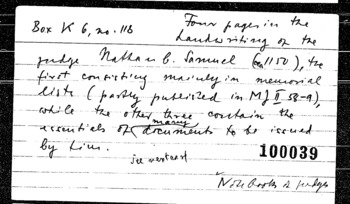 Box K 6, no. 118
Four pages in the
handwriting of the
judge Nathan b. Samuel (ca 1150), the
first consisting mainly in memorial
lists (partly published in Mj II 58-9),
while the other three contain the
essentials of many documents to be issued
by him.
see next card
100039
Notebooks of judges